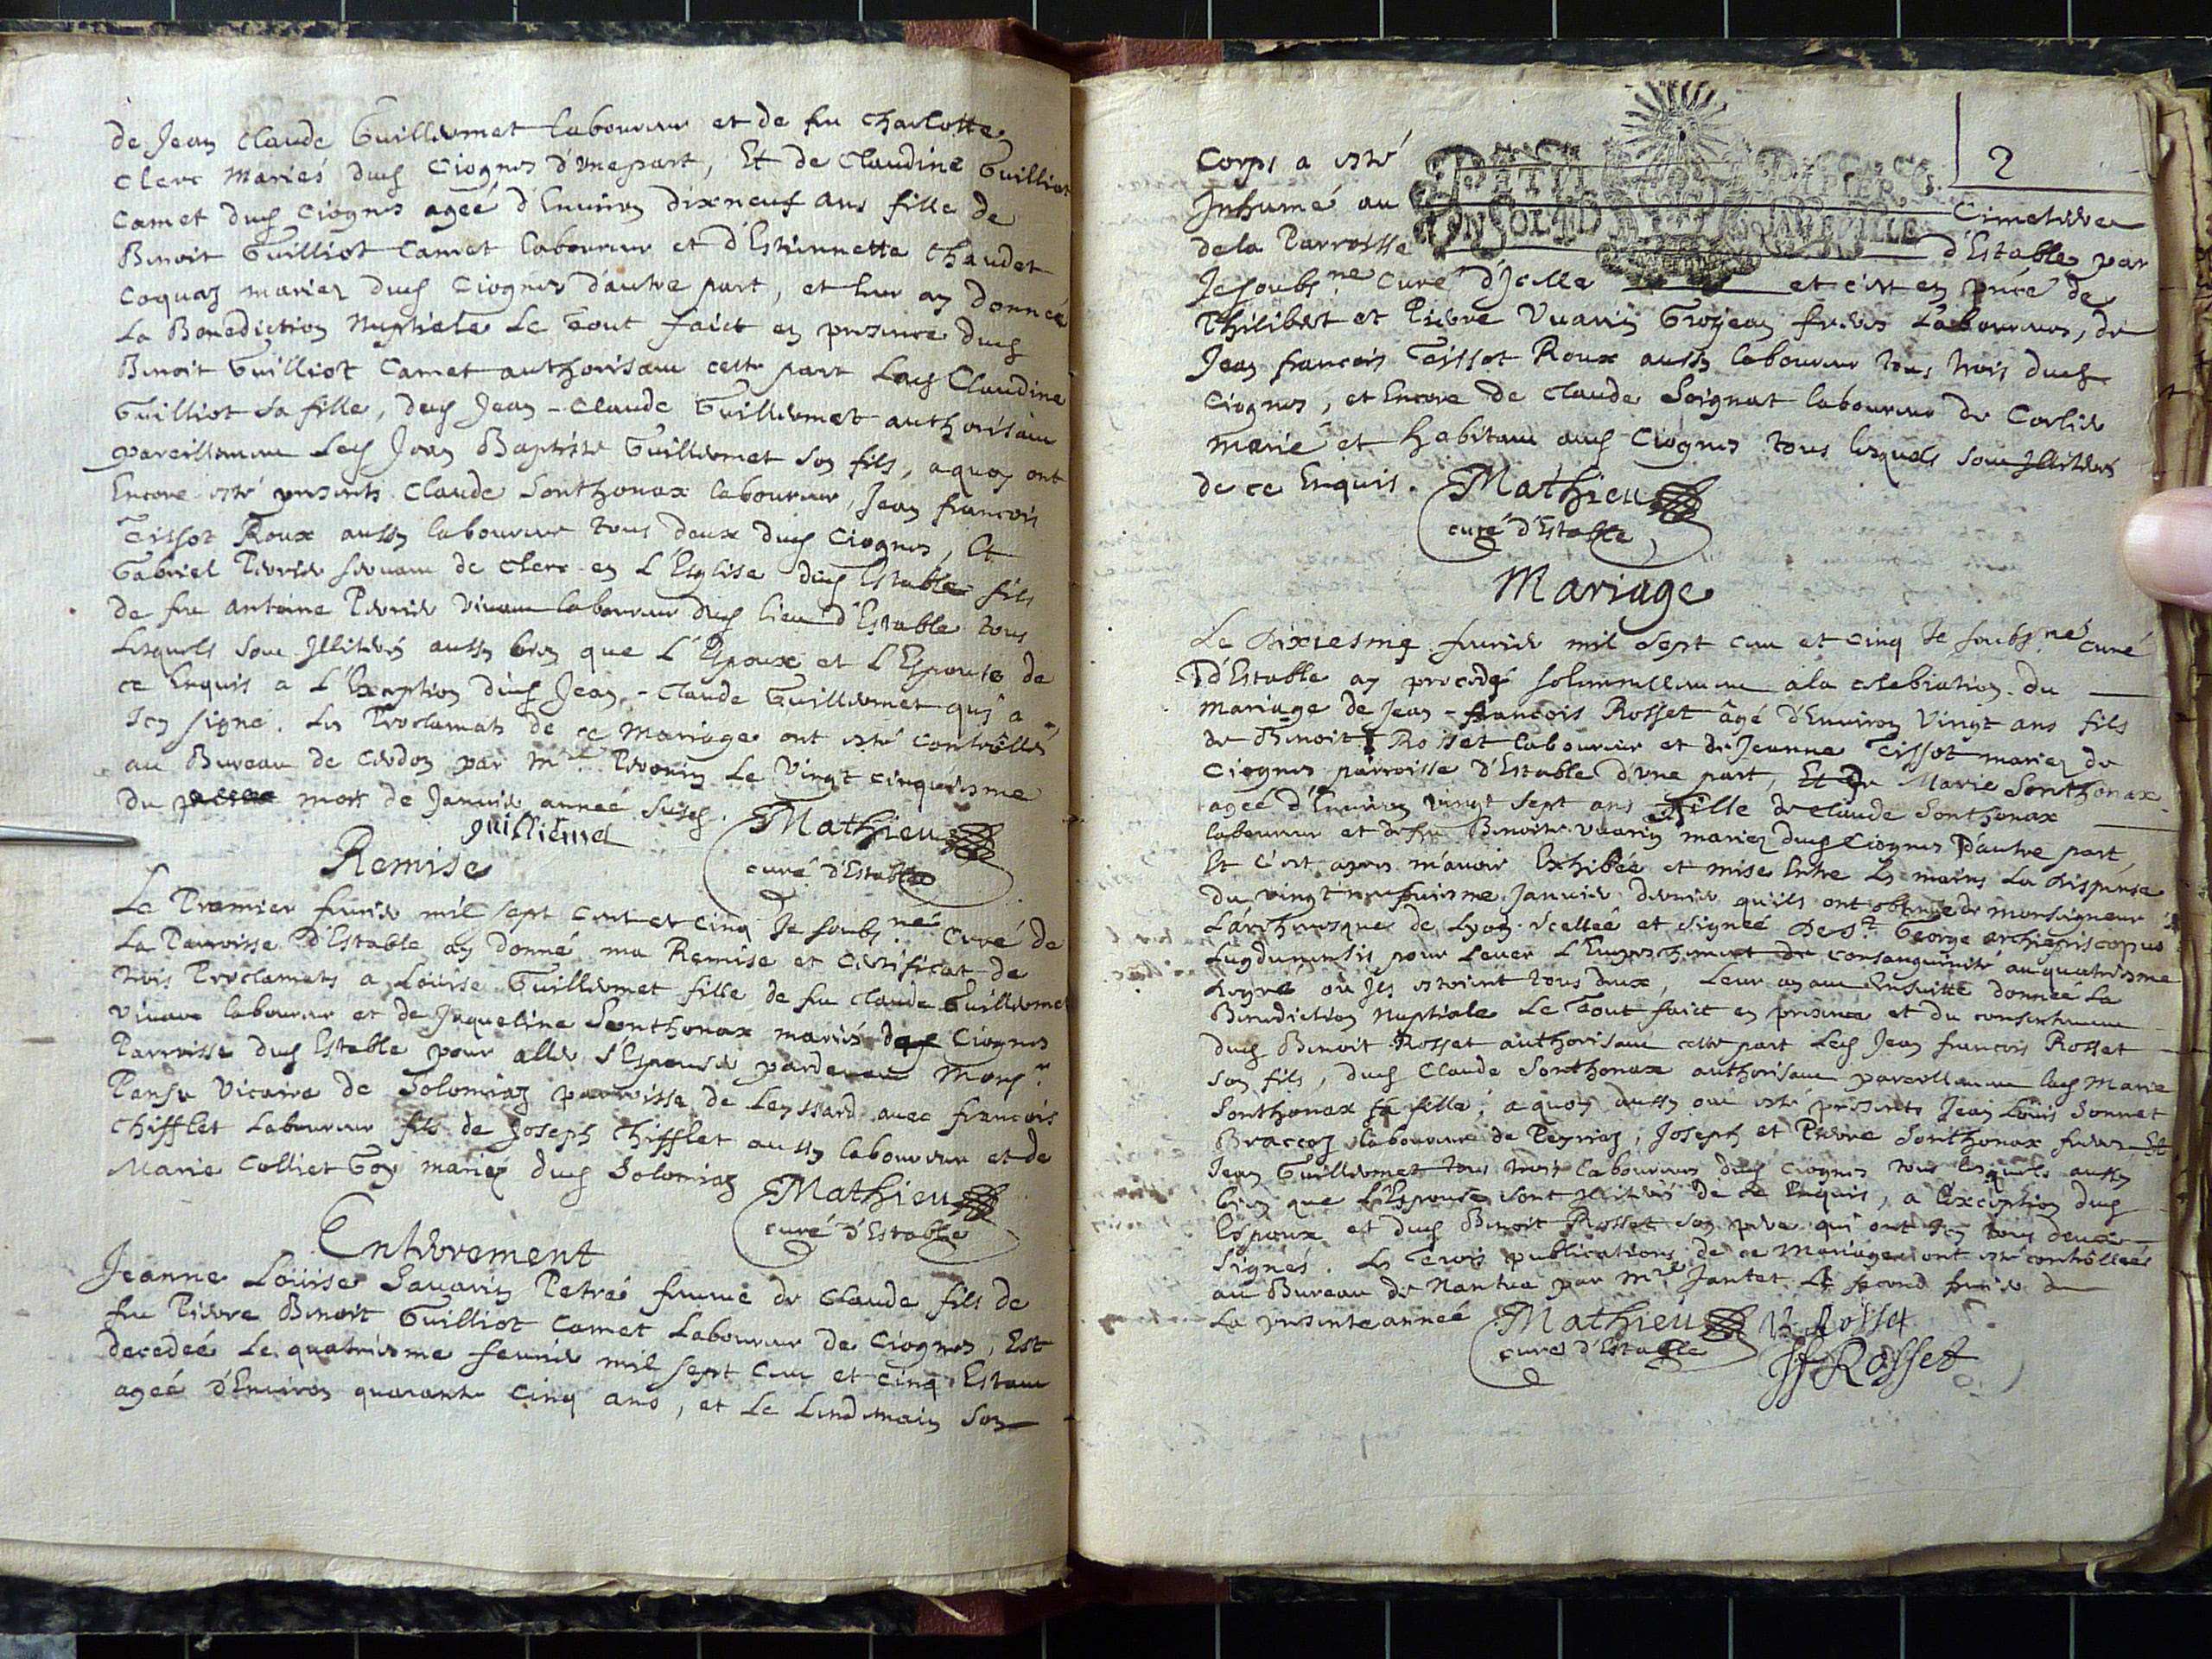 de Jean Claude Guillermet laboureur et de feu Charlotte
Clerc mariés dud Ciognes d'une part, Et de Claudine Guilliot
Camet dud Ciognes ageé d'Environ dix neuf ans fille de
Benoit Guilliot Camet laboureur et d'Estiennette Chaudet
Coquaz mariez dud Ciognes d'autre part, et leur ay donneé
La Benediction Nuptiale Le Tout faict en presence dud
Benoit Guilliot Camet authorisant cette part Lad Claudine
Guilliot sa fille, dud Jean-Claude Guillermet authorisant
pareillement Led Jean Baptiste Guillermet son fils, a quoy ont
Encore esté presents Claude Sonthonax laboureur, Jean francois
Tissot Roux aussy laboureur tous deux dud Ciognes, Et
Gabriel Perrier servant de Clerc en L'Esglise dud Estable fils
de feu Antoine Perrier vivant laboureur dud lieu d'Estable tous
Lesquels sont Illiterés aussy bien que L'Espoux et L'Espouse de
ce Enquis a L'Exception dud Jean-Claude Guillermet quj a
Icy signé. Les Proclamats de ce Mariage ont esté controllés
au Bureau de Cerdon par Mre Le Vingt cinquiesme
du mois de Janvier anneé susd.
guillermet Mathieu
curé d'Estable
Remise
Le Premier fevrier mil sept cent et cinq Je soubsné Curé de
La Parroisse d'Estable ay donné ma Remise et Certificat de
trois Proclamats a Louise Guillermet fille de feu Claude Guillermet
vivant laboureur et de Jaqueline Sonthonax mariés de Ciognes
Parroisse dud Estable pour aller s'Espouser pardevant Monsr
Pansu Vicaire de Solomiaz parroisse de Leyssard avec francois
Chifflet Laboureur fils de Joseph Chifflet aussy laboureur et de
Marie Colliet Goy mariez dud Solomiaz
Mathieu
curé d'Estable
Enterrement
Jeanne Louise Savarin Petré femme de Claude fils de
feu Pierre Benoit Guilliot Camet Laboureur de Ciognes, Est
decedeé Le quatriesme fevrier mil sept cent et cinq Estant
ageé d'Environ quarante cinq ans, et Le Lendemain son
2
PETIT PAPIER
UN SOL IID LA FEUILLE
Corps a esté
Inhumé au Cimetiere
de la Parroisse d'Estable par
Je soubsné Curé d'Jcelle et c'est en pnce de
Philibert et Pierre Vuarin Grosjean freres Laboureurs, de
Jean francois Tissot Roux aussy laboureur tous trois dud
Ciognes, et Encore de Claude Soignat laboureur de Corlier
marié et habitant aud Ciognes tous lesquels sont Illiterés
de ce Enquis. Mathieu
curé d'Estable
Mariage
Le Dixiesme fevrier mil sept cent et cinq Je soubsné Curé
d'Estable ay procedé solemnellement a la celebration du
mariage de Jean-francois Rosset âgé d'Environ Vingt ans fils
de Benoit Rosset laboureur et de Jeanne Tissot mariez de
Ciognes parroisse d'Estable d'une part, Et de Marie Sonthonax
ageé d'Environ vingt sept ans fille de Claude Sonthonax
laboureur et de feu Benoite Vuarin mariez dud Ciognes d'autre part,
Et c'est apres m'avoir Exhibée et mise Entre Les mains La dispense
du vingt neufviesme Janvier dernier qu'ils ont obtenue de Monseigneur
L'archevesque de Lyon scelleé et signeé De St George archiepiscopus
Lugdunensis pour Lever L'Empeschement de consanguinité au quatriesme
degré où Jls estoient tous deux, Leur ayant Ensuitte donneé La
Benediction Nuptiale Le Tout faict en presence et du consentement
dud Benoit Rosset authorisant cette part Led Jean francois Rosset
son fils, dud Claude Sonthonax authorisant pareillement lad Marie
Sonthonax sa fille, a quoy aussy ont esté presents Jean Louis Sonnet
Braccoz laboureur de Peyriaz, Joseph et Pierre Sonthonax freres Et
Jean Guillermet tous trois laboureurs dud Ciognes tous lesquels aussy
bien que L'Espouse sont Illiterés de ce Enquis, a L'Exception dud
Espoux et dud Benoit Rosset son pere qui ont Icy tous deux
signés. Les Trois publications de ce Mariage ont esté controlleés
au Bureau de Nantua par Mre Jantet Le second fevrier de
La presente anneé Mathieu B. Rosset
curé d'Estable JfRosset